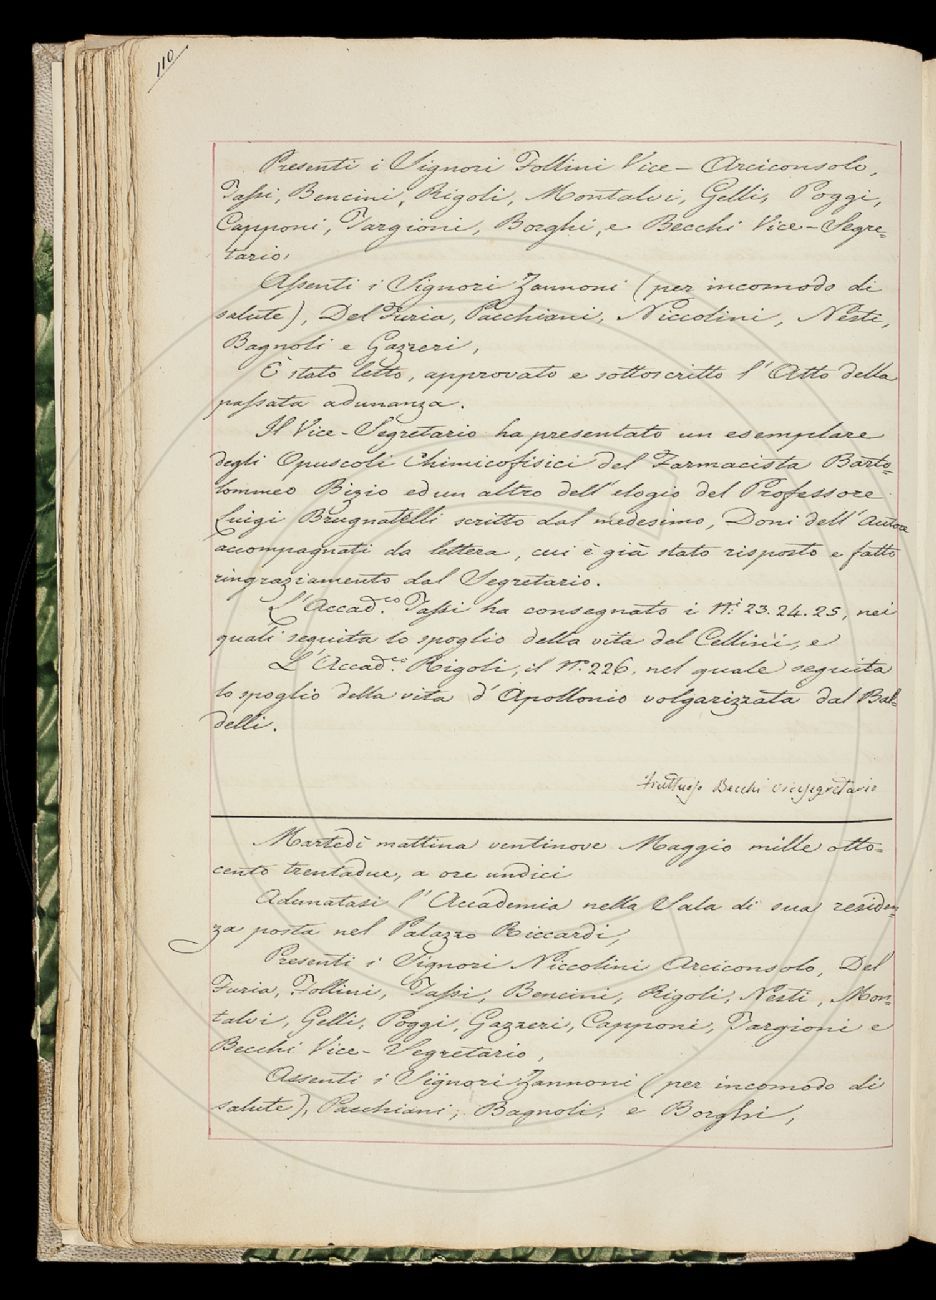 110
Presenti i Signori Follini Vice-Arciconsolo,
Tassi, Bencini, Rigoli, Montalvi, Gelli, Poggi,
Capponi, Targioni, Borghi, e Becchi Vice-Segre=
tario,
Assenti i Signori Zannoni (per incomodo di
salute), Del Furia, Pacchiani, Niccolini, Nesti,
Bagnoli e Gazzeri,
È stato letto, approvato e sottoscritto l'Atto della
passata adunanza.
Il Vice-Segretario ha presentato un esemplare
degli Opuscoli Chimicofisici del Farmacista Barto=
lommeo Bizio ed un altro dell'elogio del Professore
Luigi Brugnatelli scritto dal medesimo, Doni dell'Autore
accompagnati da lettera, cui è già stato risposto e fatto
ringraziamento dal Segretario.
L'Accad.co Tassi ha consegnato i N.i 23. 24. 25, nei
quali seguita lo spoglio della vita del Cellini, e
L'Accad.co Rigoli, il N.o 226. nel quale seguita
lo spoglio della vita d'Apollonio volgarizzata dal Bal=
delli.
Fruttuoso Becchi vicesegretario
Martedì mattina ventinove Maggio mille otto=
cento trentadue, a ore undici
Adunatasi l'Accademia nella Sala di sua residen=
za posta nel Palazzo Riccardi,
Presenti i Signori Niccolini Arciconsolo, Del
Furia, Follini, Tassi, Bencini, Rigoli, Nesti, Mon=
talvi, Gelli, Poggi, Gazzeri, Capponi, Targioni e
Becchi Vice-Segretario,
Assenti i Signori Zannoni (per incomodo di
salute), Pacchiani, Bagnoli, e Borghi,